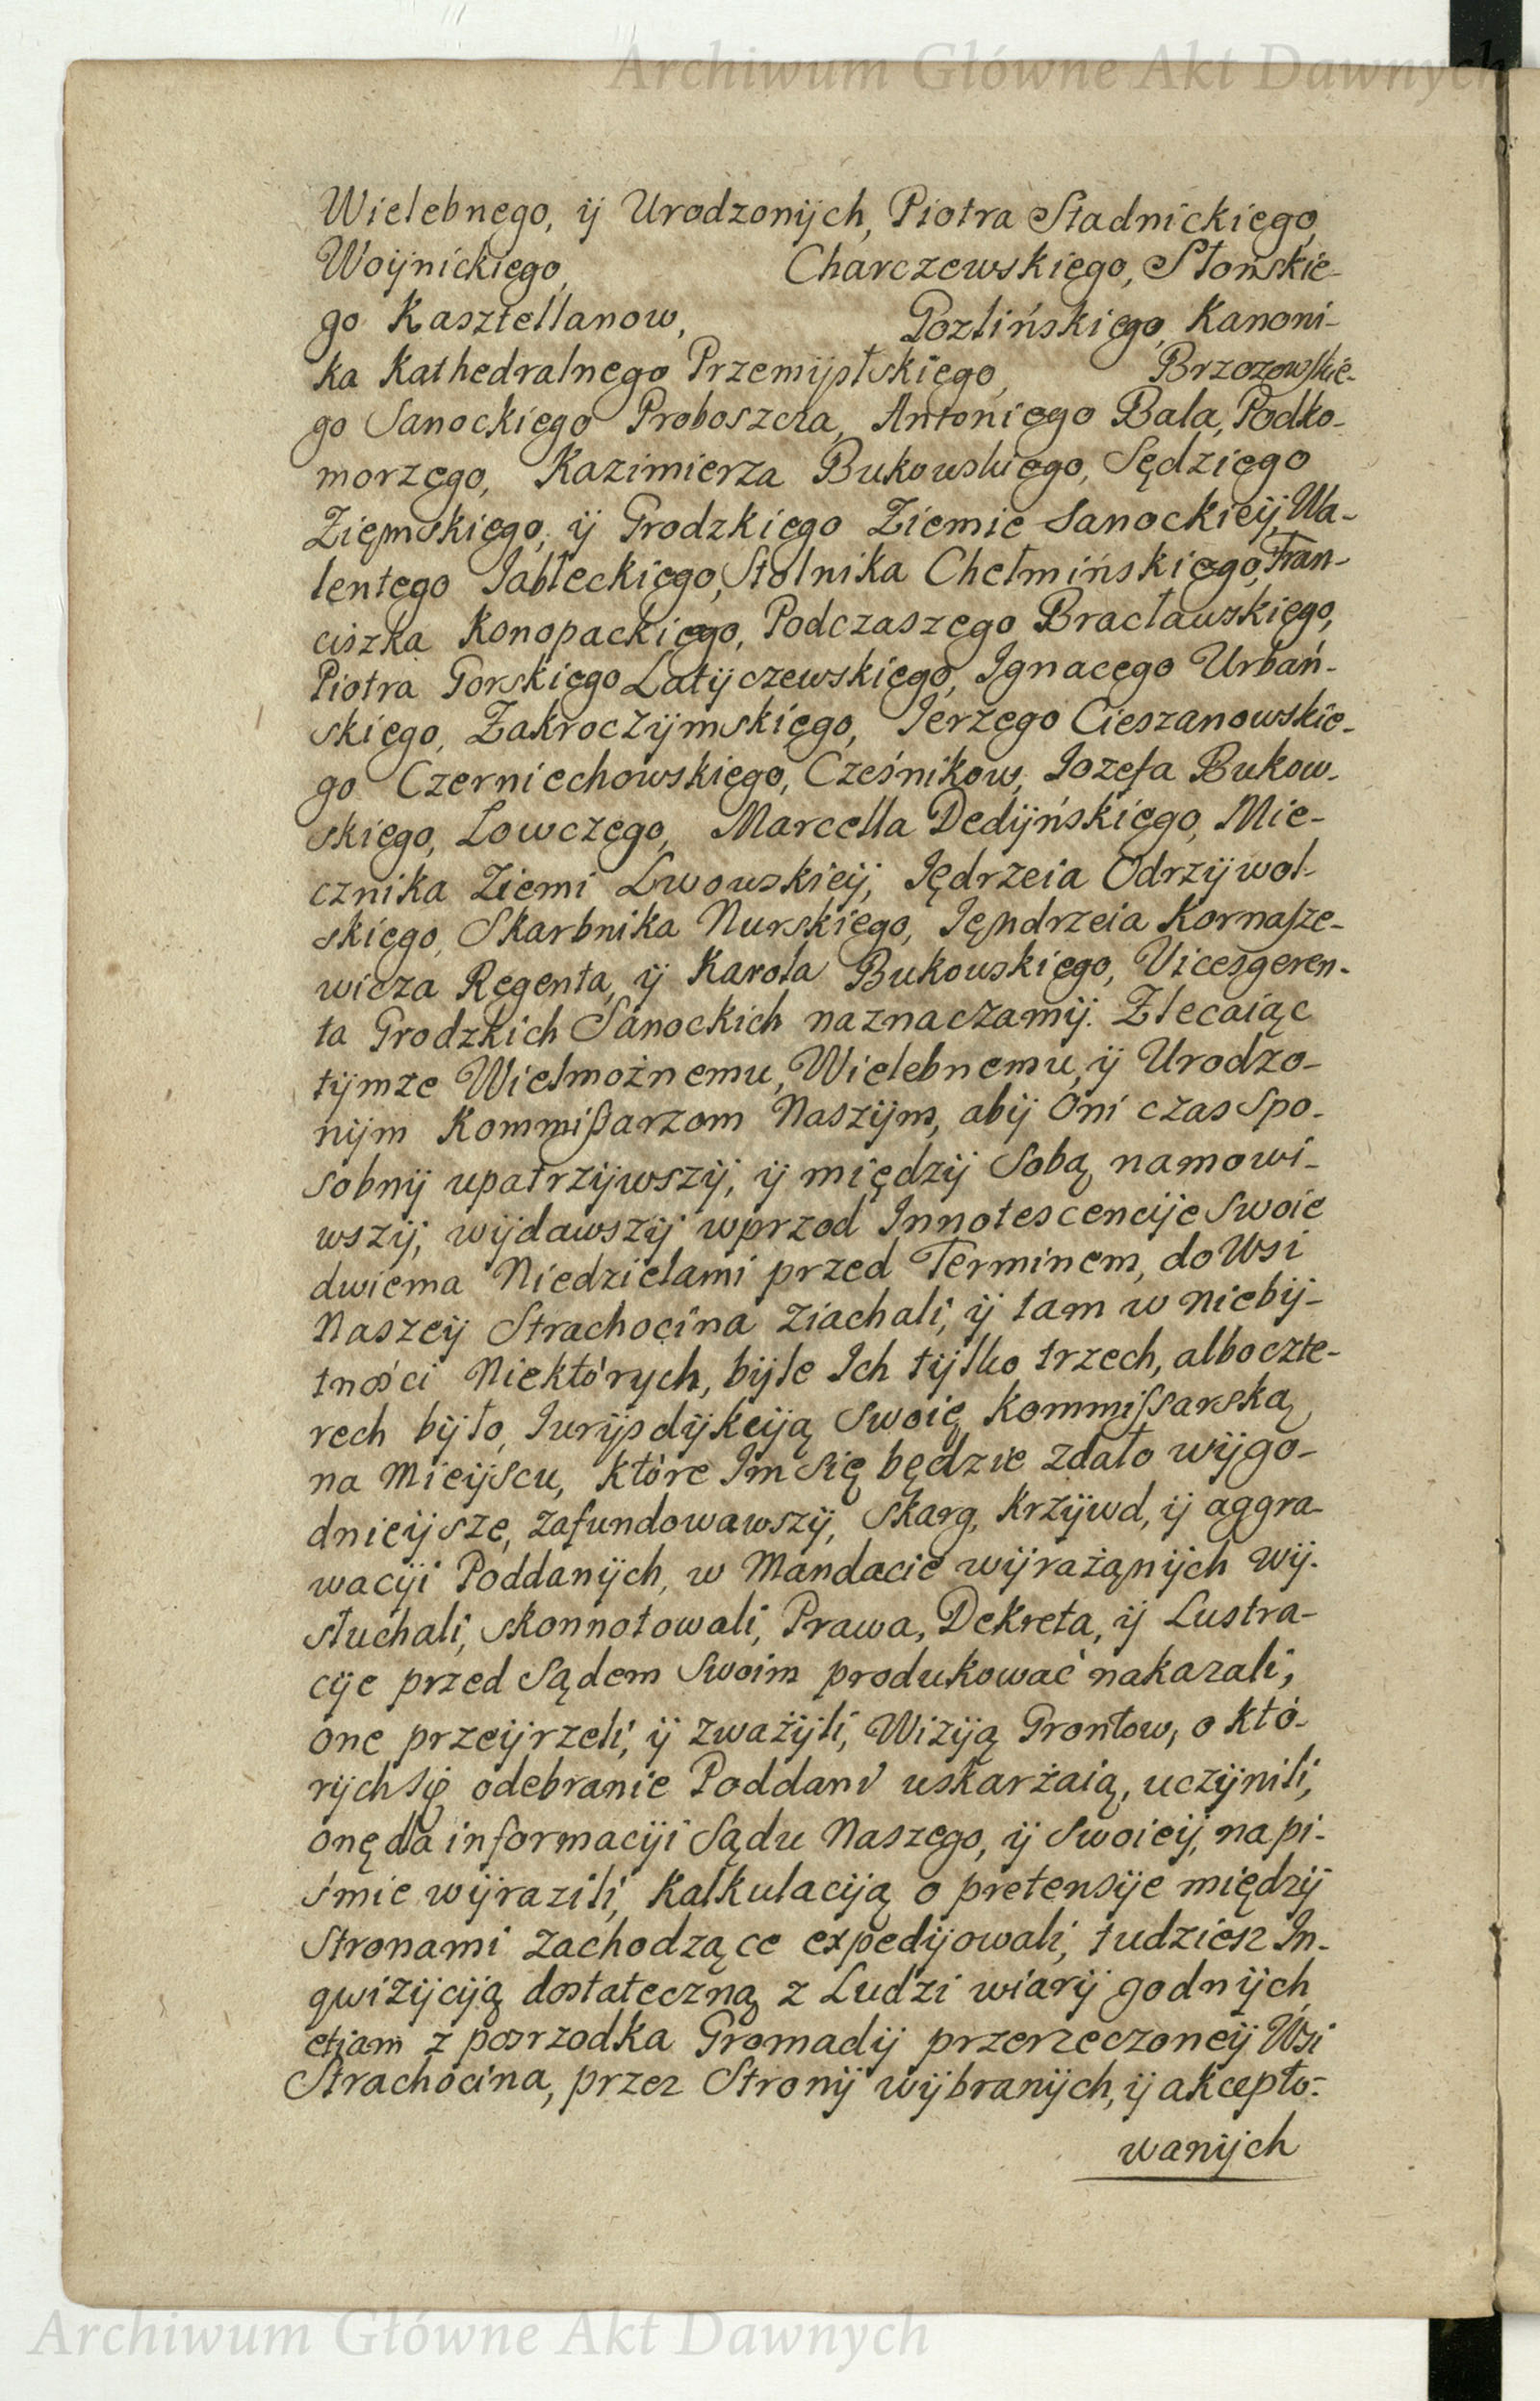 Archiwum Główne Akt Dawnych
Wielebnego, ij Urodzonijch, Piotra Stadnickiego,
Woijnickiego, Charczewskiego, Słońskie-
go Kasztellanow, Pozlińskiego, Kanoni-
ka Kathedralnego Przemijslskiego, Brzozowskie-
go Sanockiego Proboszcza, Antoniego Bala, Podko-
morzego, Kazimierza Bukowskiego, Sędziego
Ziemskiego, ij Grodzkiego Ziemie Sanockieij, Wa-
lentego Jabłeckiego, Stolnika Chełmińskiego, Fran-
ciszka Konopackiego, Podczaszego Bracławskiego,
Piotra Gorskiego Latijczewskiego, Ignacego Urbań-
skiego, Zakroczijmskiego, Jerzego Cieszanowskie-
go Czerniechowskiego, Cześnikow, Jozefa Bukow-
skiego, Lowczego, Marcella Dedijńskiego, Mie-
cznika Ziemi Lwowskieij, Jędrzeia Odrzijwol-
skiego, Skarbnika Nurskiego, Jęndrzeia Kornasze-
wicza Regenta, ij Karola Bukowskiego, Vicesgeren-
ta Grodzkich Sanockich naznaczamij. Zlecaiąc
tijmże Wielmożnemu, Wielebnemu, ij Urodzo-
nijm Kommißarzom Naszijm, abij Oni czas Spo-
sobnij upatrzijwszij, ij międzij Sobą namowi-
wszij, wijdawszij wprzod Innotescencije Swoie
dwiema Niedzielami przed Terminem, do Wsi
Naszeij Strachocina ziachali, ij tam w niebij-
tności Niektórych, bijle Ich tijlko trzech, albo czte-
rech bijło, Jurijsdijkciją Swoię Kommissarską
na Mieijscu, które Im Się będzie zdało wijgo-
dnieijsze, zafundowawszij, Skarg, Krzijwd, ij aggra-
waciji Poddanijch, w Mandacie wijrażonijch wij-
słuchali, skonnotowali, Prawa, Dekreta, ij Lustra-
cije przed Sądem Swoim produkować nakazali,
one przeijrzeli, ij zważijli, Wiziją Grontow, o któ-
rijch się odebranie Poddani uskarżaią, uczijnili,
onę dla informaciji Sądu Naszego, ij Swoieij, na pi-
śmie wijrazili, Kalkulaciją o pretensije międzij
Stronami zachodzące expedijowali, tudziesz In-
qwizijciją dostateczną z Ludzi wiarij godnijch,
etiam z posrzodka Gromadij przerzeczoneij Wsi
Strachocina, przez Stronij wijbranijch, ij akcepto-
wanijch
Archiwum Główne Akt Dawnych